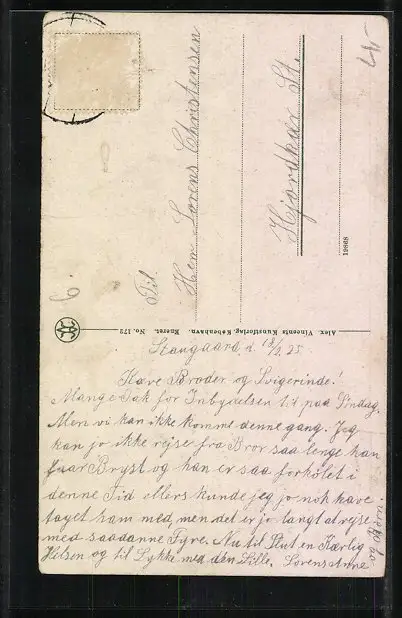 Til
Herr Lorens Christensen
Hjordkær St.
19868
Alex. Vincents Kunstforlag, København. Eneret. No. 172
Staugaard d. 18/2. 25
Kære Broder og Svigerinde!
Mange Tak for Inbydelsen til paa Søndag.
Men vi kan ikke komme denne gang. Jeg
kan jo ikke rejse fra Bror saa lenge han
faar Bryst og han er saa forkølet i
denne Tid ellers kunde jeg jo nok have
taget ham med, men det er jo langt at rejse
med saadanne Fyre. Nu til Slut en Kærlig
Hilsen og til Lykke med den Lille. Lorens Anne